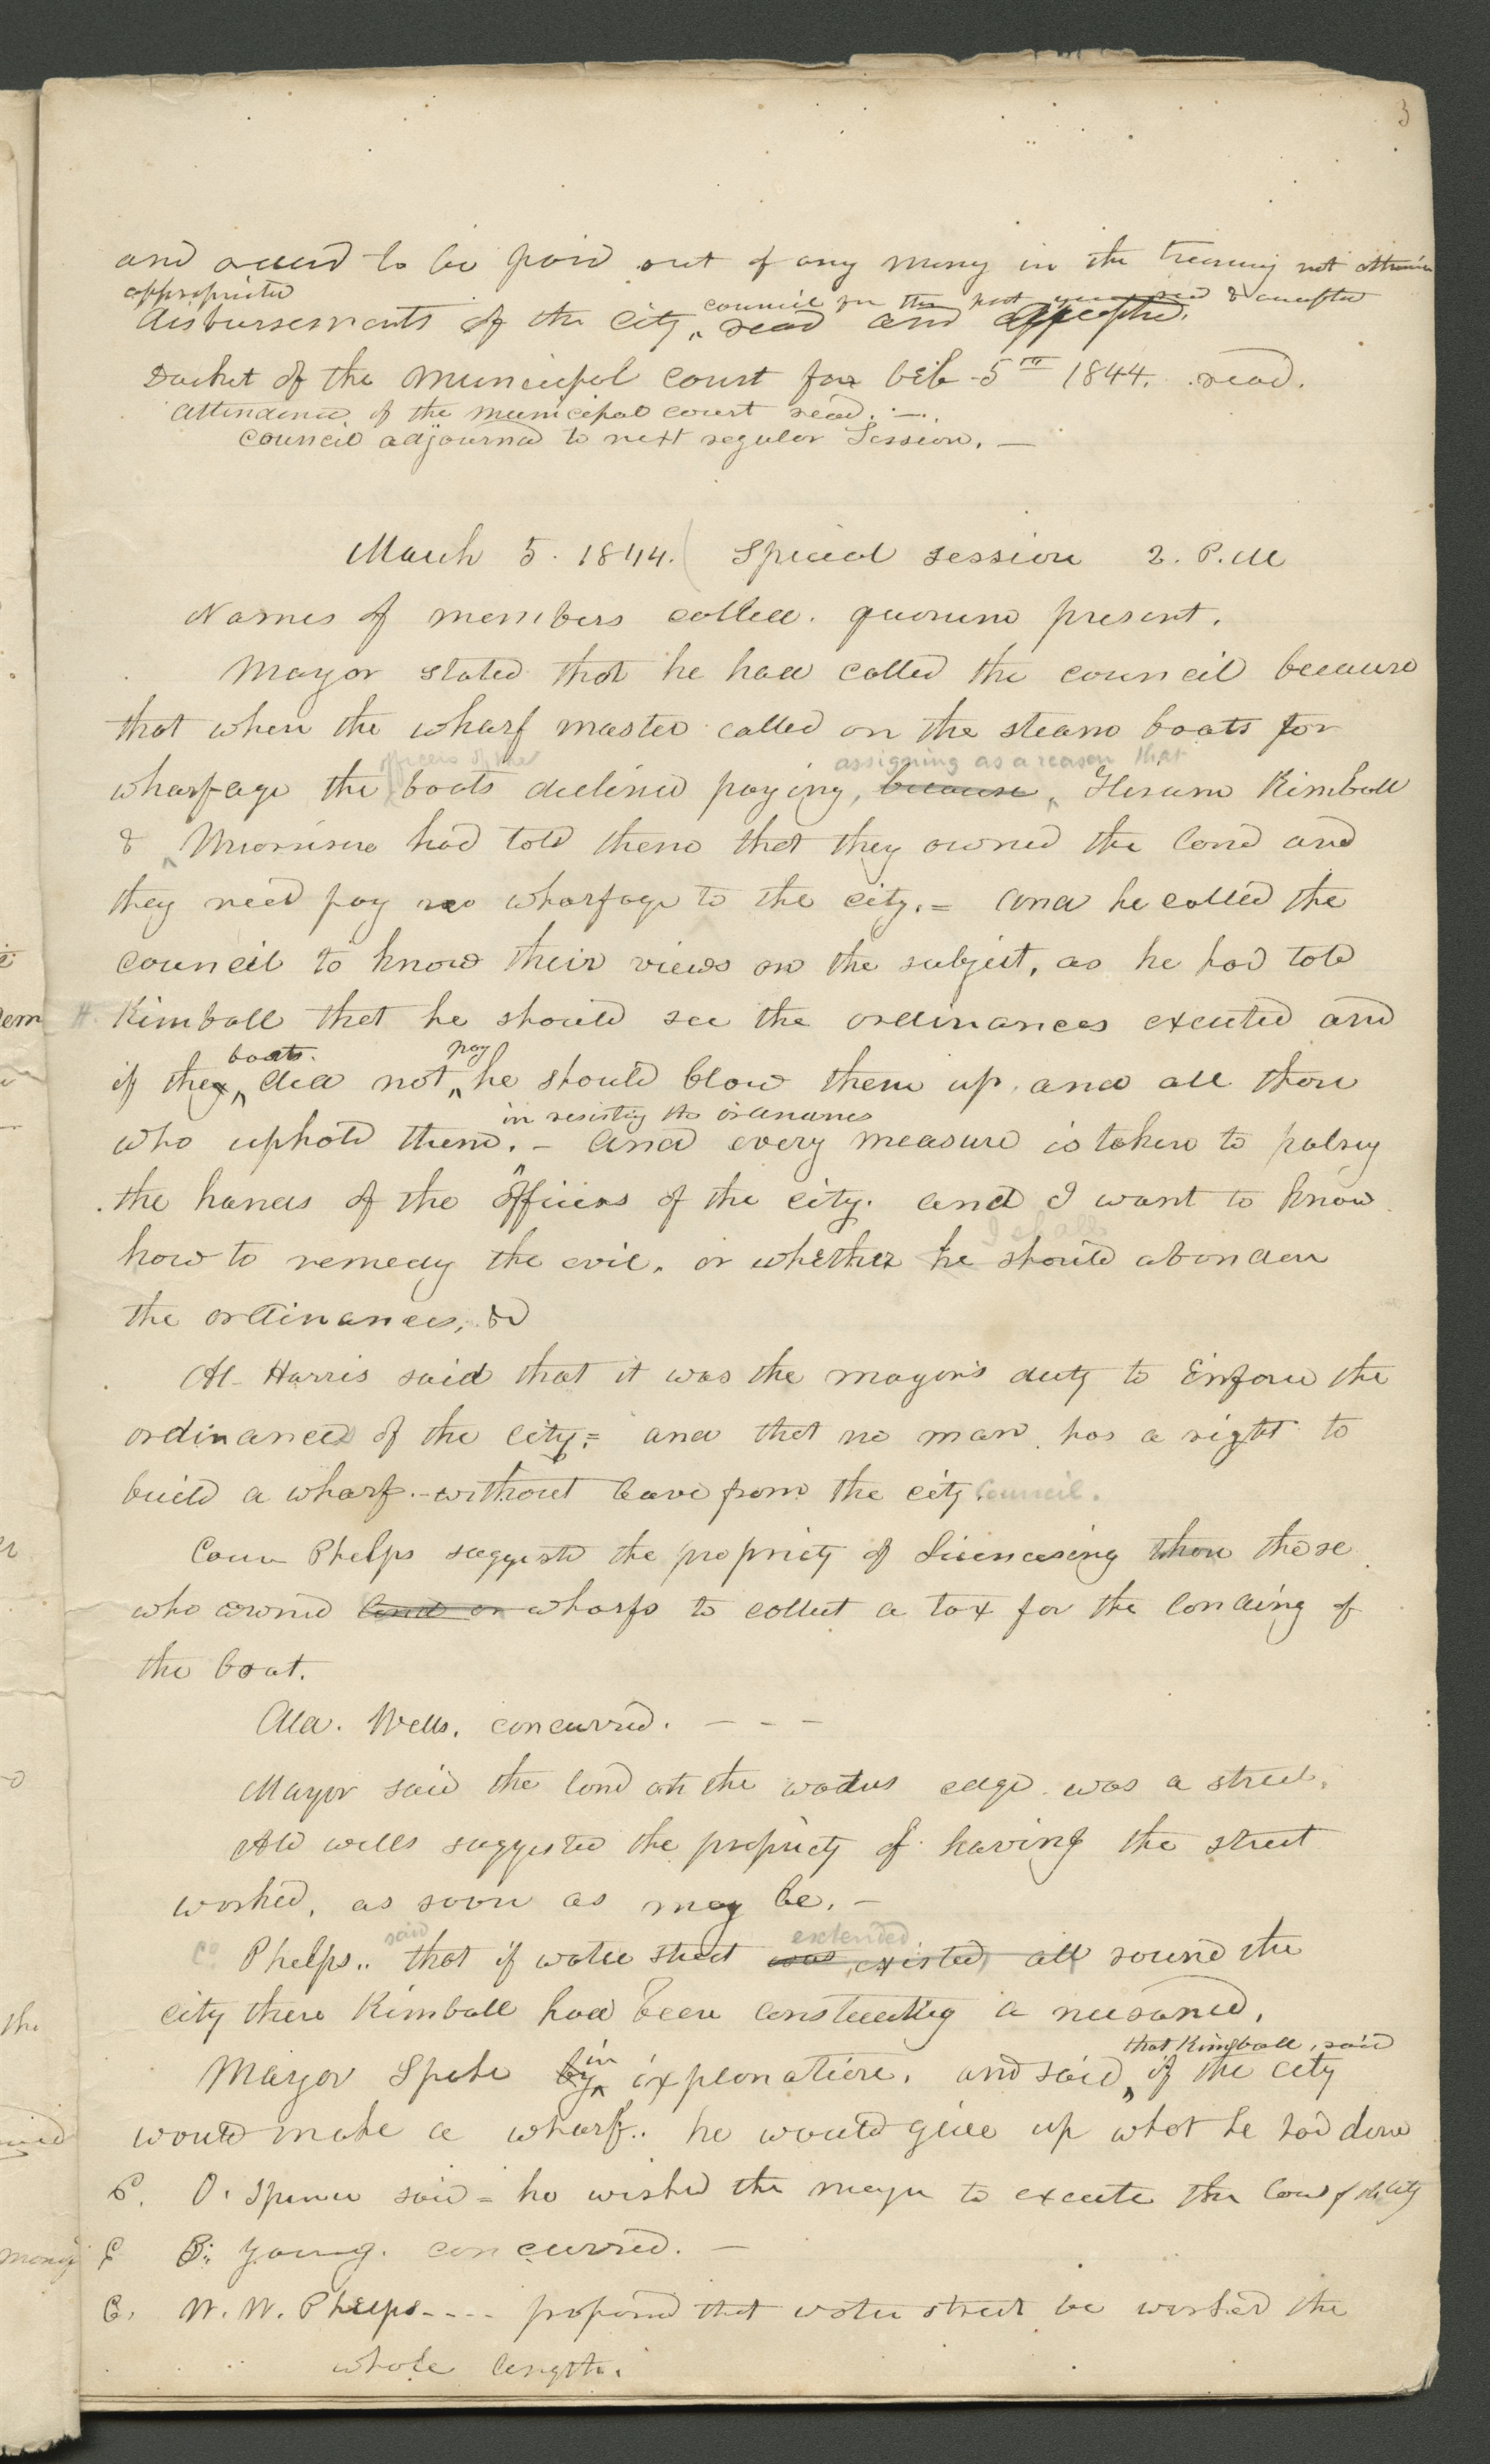 3
and order^d to be paid out of any money in the treasury not otherwise
appropriated
council for the past year read & accepted
disbursements of the City read and accepted.
Docket of the Municipal Court for Feb 5th 1844. read.
attendance of the municipal court read. —.
council adjourned to next regular Session. —
March 5. 1844. Special session 2. P.M
Names of members called. quorum present.
Mayor stated that he had called the council because
that when the wharf master called on the steam boats for
officers of the assigning as a reason that
wharfage the boats declined paying, because Hiram Kimball
& Morrison had told them that they owned the land and
they need pay no wharfage to the city. = and he called the
council to know their views on the subject, as he had told
H. Kimball that he should see the ordinances executed and
boats. pay
if they did not he should blow them up. and all those
in resisting the ordinances
who uphold them. - and every measure is taken to palsy
the hands of the officers of the city. and I want to know
I shall
how to remedy the evil. or whether he should abandon
the ordinances, &
Al- Harris said that it was the mayor's duty to Enforce the
ordinances of the city; = and that no man has a right to
build a wharf. - without leave from the city Council.
Coun Phelps suggestd the propriety of licencesing those
who owned land or wharfs to collect a tax for the landing of
the boat.
Ald. Wells. concurred. - - -
Mayor said the land at the waters edge was a street.
Ald wells suggested the propriety of having the street
worked, as soon as may be. —
said extended
Co Phelps.. that if water street was existed, all round the
city there Kimball had been constructing a nusance.
in that Kimball, said
Mayor Spoke by explanation. and said if the city
would make a wharf.. he would give up what he had done
C. O. Spencer said = he wished the mayor to execute the laws of the city
C B. Young. concurred. —
C. W. W. Phelps - - - - proposed that water street be worked the
whole length.